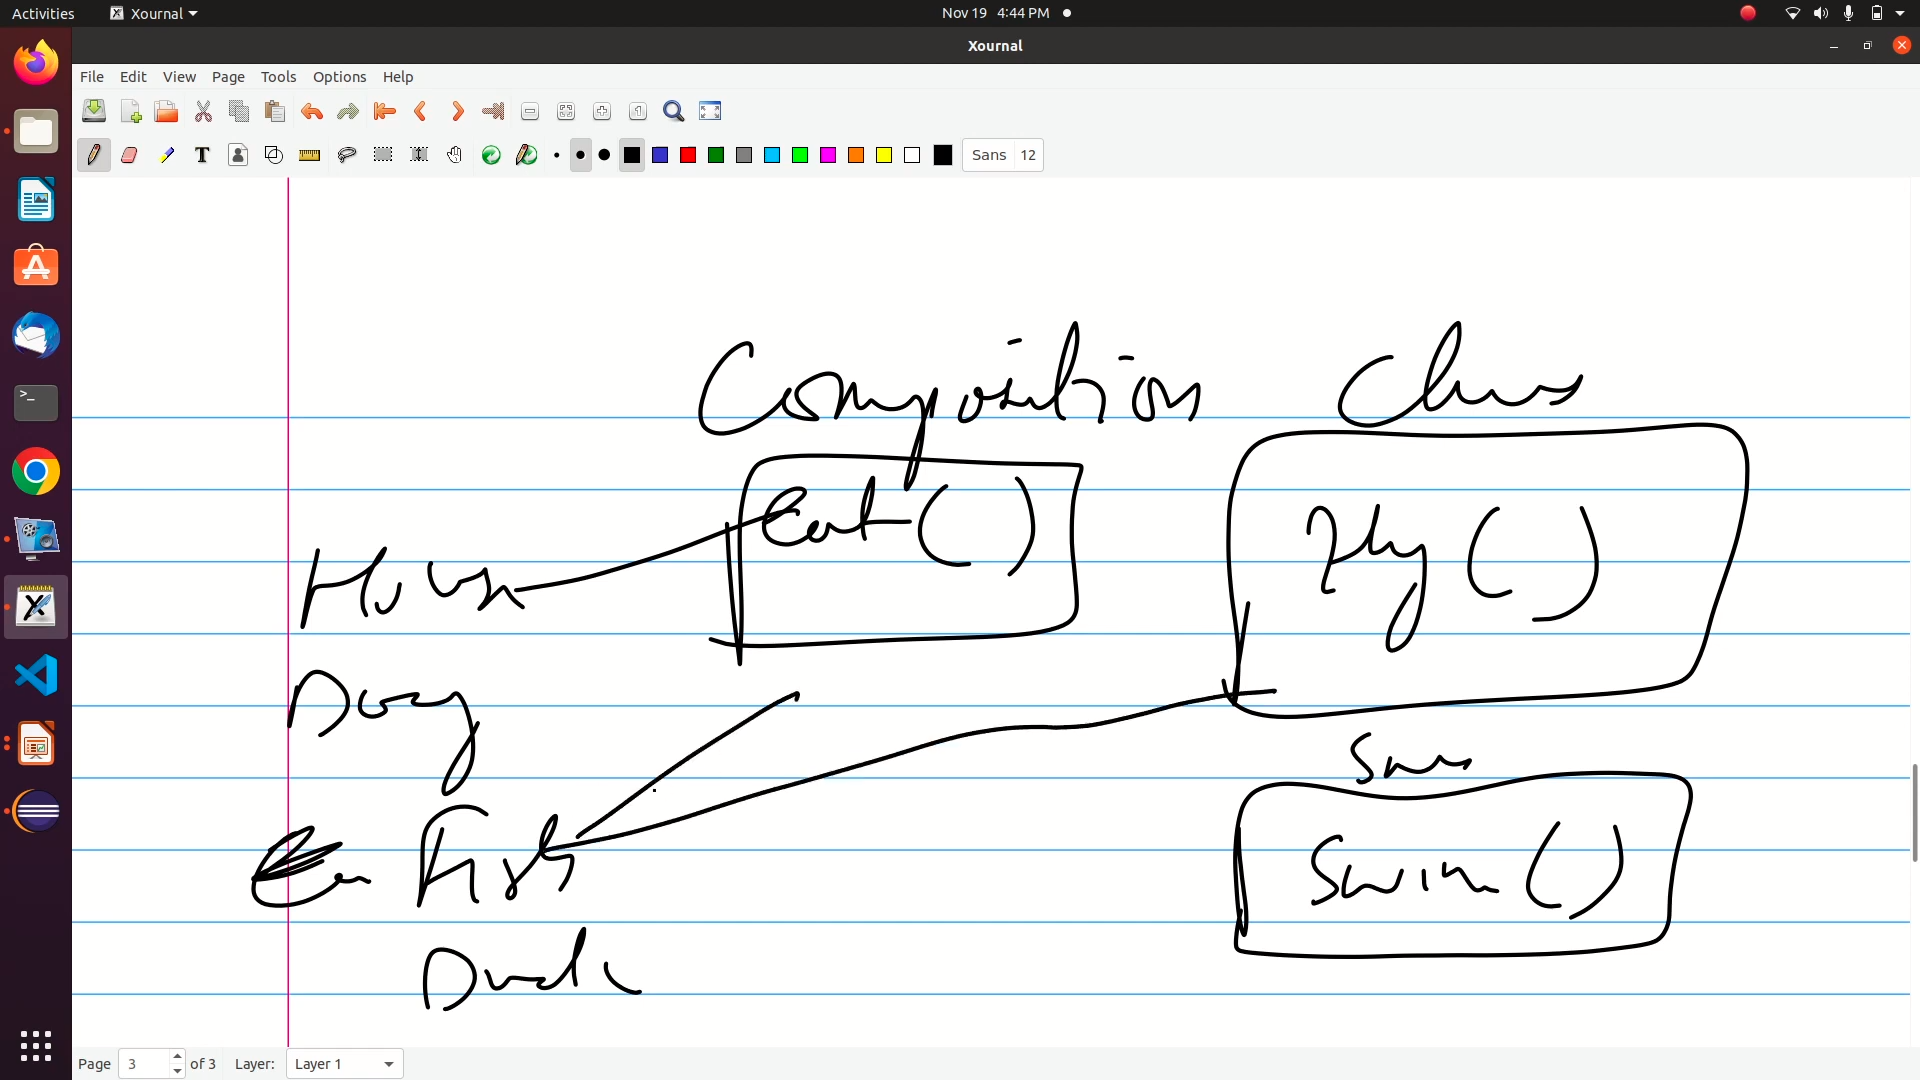 Activities Xournal Nov 19 4:44 PM
Xournal
File Edit View Page Tools Options Help
T Sans 12
Composition Class
Eat ( ) Fly ( )
Horse
Dog
Swim
Fish Swim ( )
Duck
Page 3 of 3 Layer: Layer 1